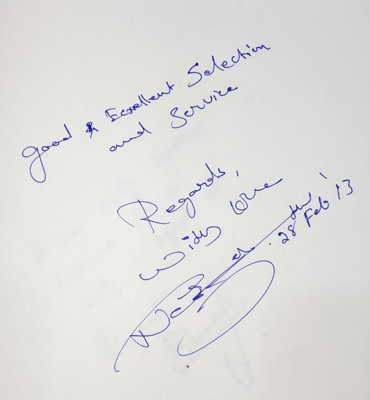 Good & Excellent Selection
and Service
Regards,
With love
28 Feb '13